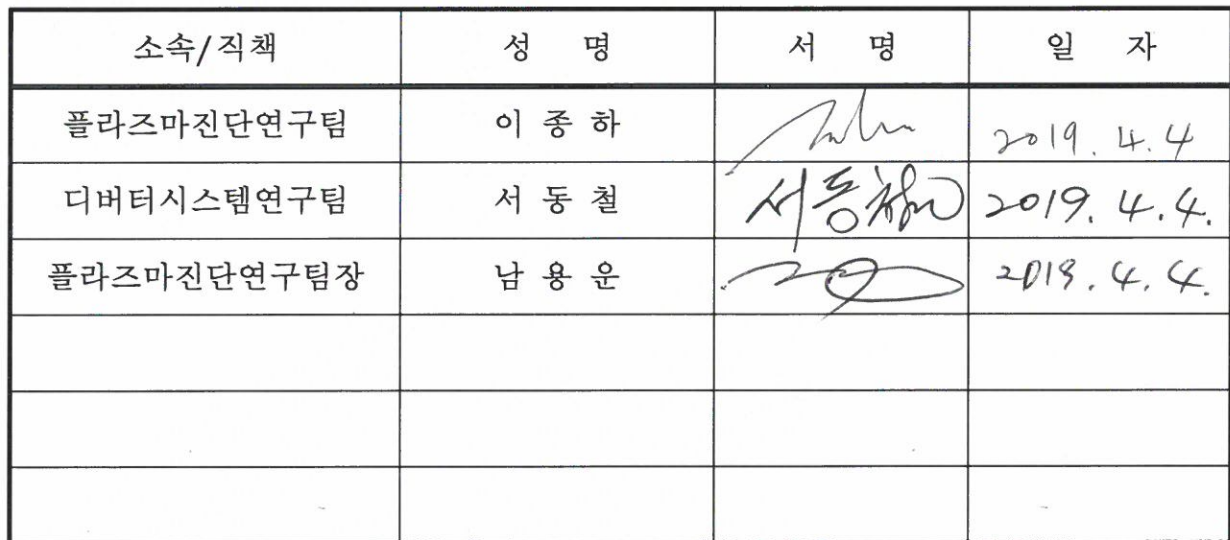 소속/직책 성 명 서 명 일 자
플라즈마진단연구팀 이 종 하 2019. 4. 4
디버터시스템연구팀 서 동 철 서동철 2019. 4. 4.
플라즈마진단연구팀장 남 용 운 2019. 4. 4.